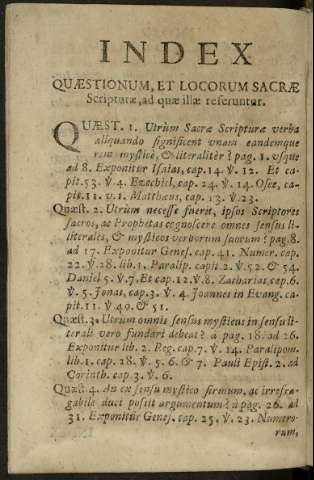 INDEX
QUÆSTIONUM, ET LOCORUM SACRÆ
Scripturæ, ad quæ illæ referuntur.
QUÆST. 1. Utrùm Sacræ Scripturæ verba
aliquando significent unam eandemque
rem mysticè, & literalitèr? pag. 1. usque
ad 8. Exponitur Isaias, cap. 14. ℣. 12. Et ca
pit. 53. ℣. 4. Ezechiel, cap. 24. ℣. 14. Osee, ca-
pit. 11. v. 1. Matthæus, cap. 13. ℣. 23.
Quæst. 2. Utrùm necesse fuerit, ipsos Scriptores
sacros, ac Prophetas cognoscere omnes sensus li-
literales, & mysticos verborum suorum? pag. 8.
ad 17. Exponitur Genes. cap. 41. Numer. cap.
22. ℣. 28. lib. 1. Paralip. capit. 2. ℣. 52. & 54.
Daniel 5. ℣. 7. Et cap. 12. ℣. 8. Zacharias, cap. 6.
℣. 5. Jonas, cap. 3. ℣. 4. Joannes in Evang. ca-
pit. 11. ℣ 49. & 51.
Quæst. 3. Utrùm omnis sensus mysticus in sensu li-
terali vero fundari debeat? à pag. 18. ad 26.
Exponitur lib. 2. Reg. cap. 7. ℣. 14. Paralipom.
lib. 1. cap. 28. ℣. 5. 6. & 7. Pauli Epist. 2. ad
Corinth. cap. 3. ℣. 6.
Quæst. 4. An ex sensu mystico firmum, ac irrefra-
gabile duci possit argumentum? à pag. 26. ad
31. Exponitur Genes. cap. 25. ℣. 23. Numero-
rum,